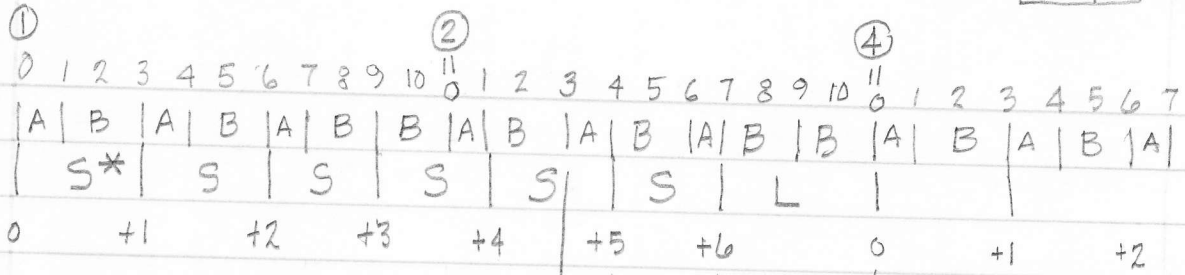 ① ② ④
0 1 2 3 4 5 6 7 8 9 10 11 1 2 3 4 5 6 7 8 9 10 11 1 2 3 4 5 6 7
0 0
|A| B |A| B |A| B | B |A| B |A| B |A| B | B |A| B |A| B |A|
| S* | S | S | S | S | S | L | |
0 +1 +2 +3 +4 +5 +6 0 +1 +2